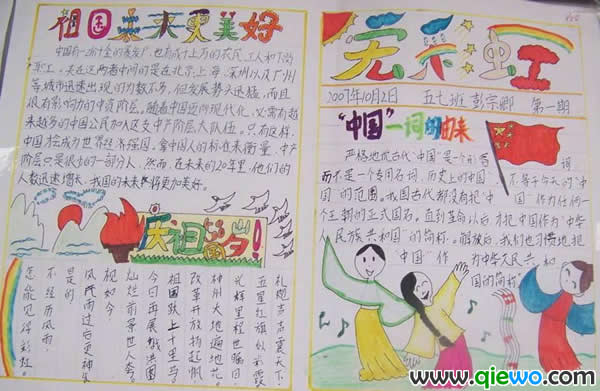 祖国未来更美好
中国有一百个金的暴发户,也有成千上万的农民、工人和下岗
职工。夹在这两者中间的是在北京、上海、深圳以及广州
等城市迅速出现的为数不多,但发展势头迅猛,而且
很有影响力的中资阶层。随着中国迈向现代化,必需有越
来越多的中国公民加入这支中产阶层大队伍。只有这样,
中国才能成为世界经济强国。拿中国人的标准来衡量,中产
阶层只是很少的一部分人。然而,在未来的20年里,他们的
人数迅速增长,我国的未来将更加美好。
庆祖国岁!
礼炮声声震天下,
五星红旗似彩霞
光辉里程世瞩目
神州大地遍地花。
改革开放扬起帆
祖国跃上千里马
今日再展鸿鹄图
灿烂前景世人夸。
视如今
风雨过后更神
是的
不经历风雨,
怎能见得彩虹。
天虹
2007年10月2日 五七班 彭宗卿 第一期
"中国"一词的由来
严格地说古代"中国"是一个形容词
而不是一个专用名词。历史上的"中国"不等于今天的"中
国"的范围。我国古代都没有把"中国"作为任何一
个王朝的正式国名。直到革命以后才把中国作为"中华
人民族共和国"的简称。解放后,我们也习惯地把
"中国"作为中华人民共和
国的简称"
www.qiewo.com